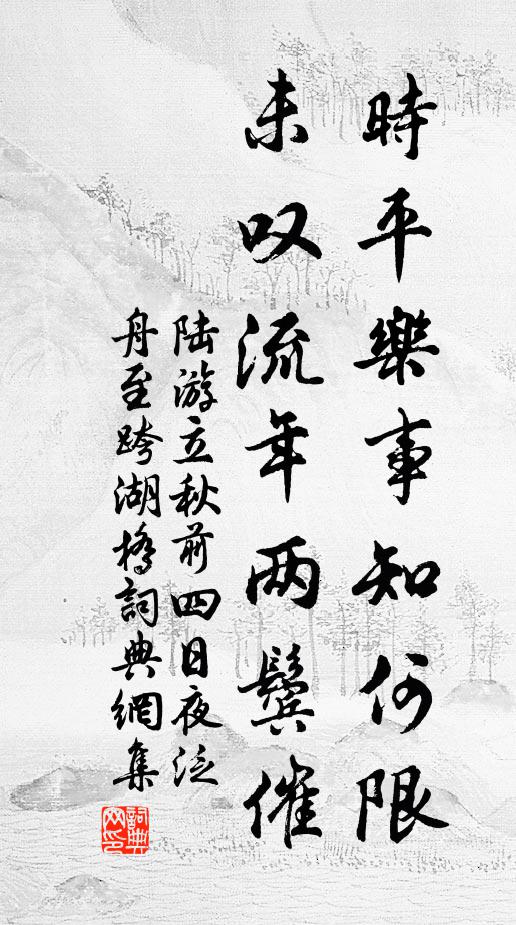 時平樂事知何限
未叹流年两鬓催
陆游立秋前四日夜泛
舟至跨湖橋詞典網集
詞典网印